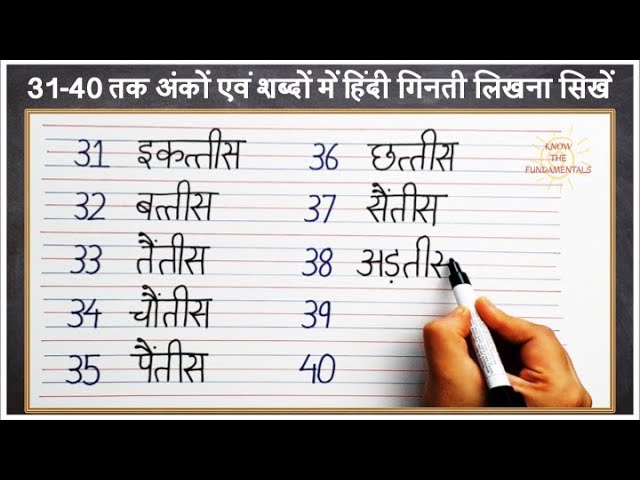 31-40 तक अंकों एवं शब्दों में हिंदी गिनती लिखना सिखें
KNOW
THE
FUNDAMENTALS
31 इकत्तीस
32 बत्तीस
33 तैंतीस
34 चौंतीस
35 पैंतीस
36 छत्तीस
37 सैंतीस
38 अड़तीस
39
40